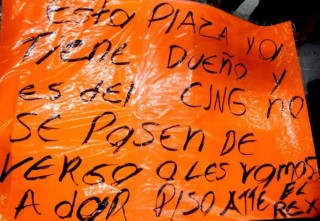 Esta PlAZA ya
Tiene DUEÑO y
es del CJNG no
SE PASEN DE
VERGA o LES vamos
A dAR PISO ATTE EL
REX